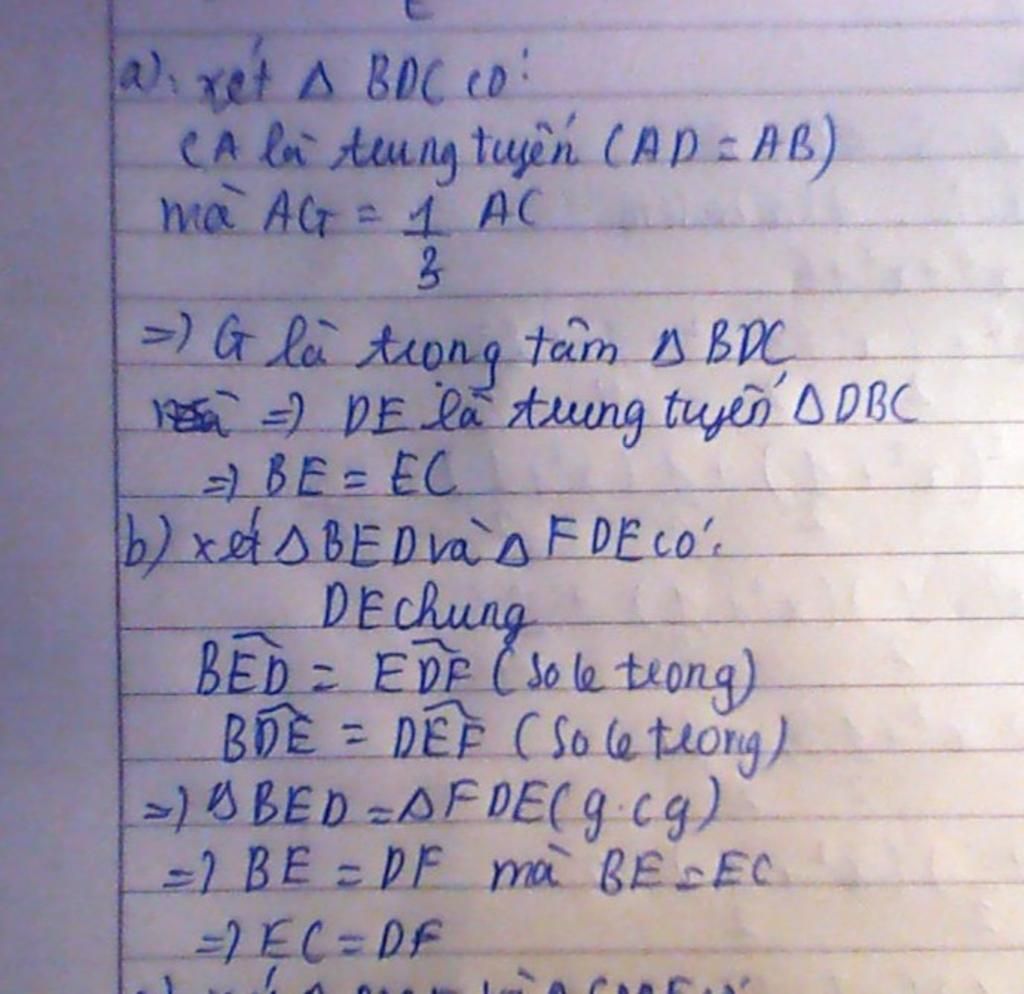 a). xét Δ BDC có:
CA là trung tuyến (AD = AB)
mà AG = 1/3 AC
=> G là trọng tâm Δ BDC
=> DE là trung tuyến Δ DBC
=> BE = EC
b) xét Δ BED và Δ FDE có:
DE chung
BED = EDF (so le trong)
BDE = DEF (so le trong)
=> Δ BED = Δ FDE (g.c.g)
=> BE = DF mà BE = EC
=> EC = DF